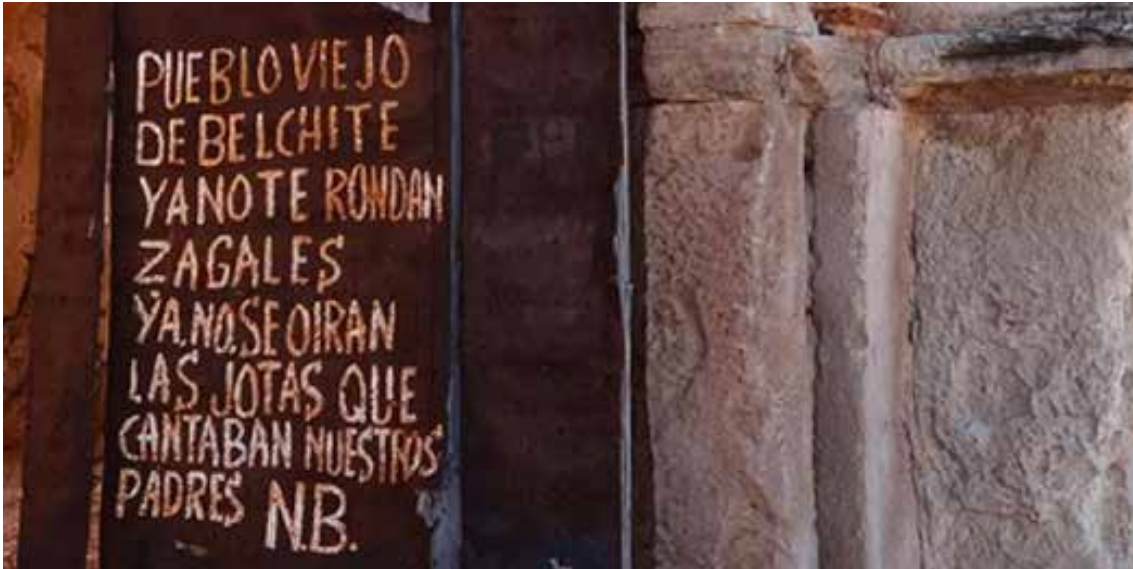 PUEBLO VIEJO
DE BELCHITE
YA NO TE RONDAN
ZAGALES
YA.NO.SE OIRAN
LAS JOTAS QUE
CANTABAN NUESTROS
PADRES N.B.